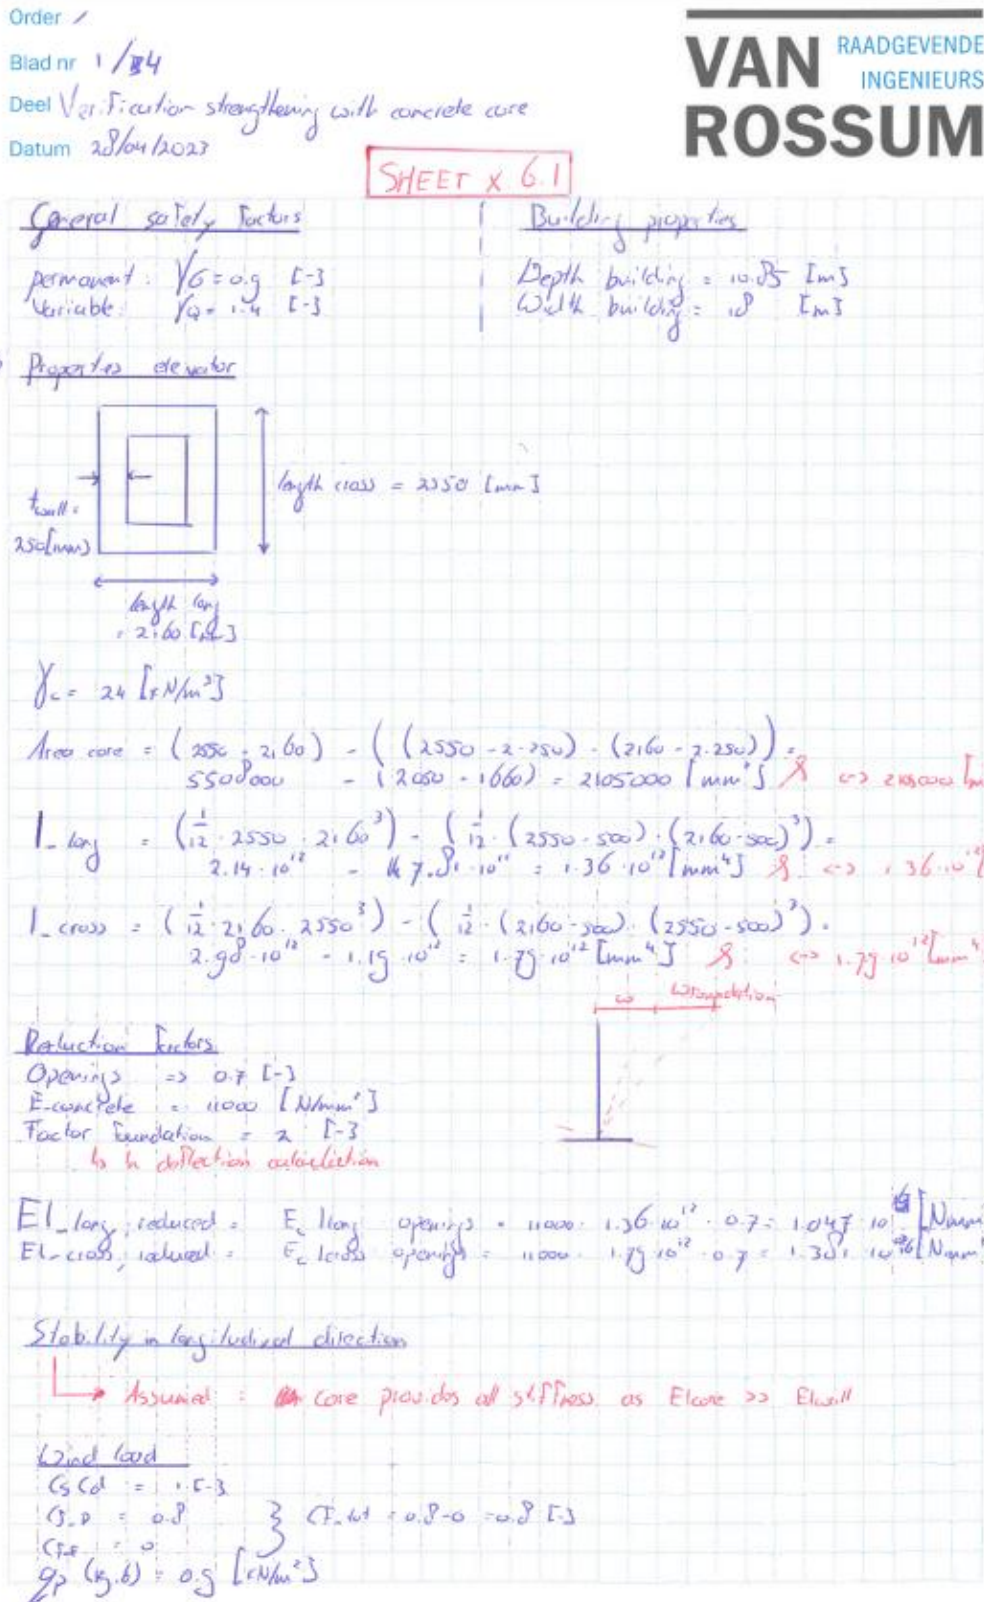 Order /
Blad nr 1/14
Deel Verification strengthening with concrete core
Datum 28/04/2023
VAN ROSSUM
RAADGEVENDE INGENIEURS
SHEET x 6.1
General safety factors
permanent: γG = 0.9 [-]
Variable: γQ = 1.4 [-]
Building properties
Depth building = 10.85 [m]
Width building = 18 [m]
Properties elevator
length cross = 2550 [mm]
twall = 250 [mm]
length long = 2160 [mm]
γc = 24 [kN/m³]
Area core = (2550 · 2160) - ((2550 - 2·250) · (2160 - 2·250)) =
5508000 - (2050 · 1660) = 2105000 [mm²] <-> 2105000 [m
I_long = (1/12 · 2550 · 2160³) - (1/12 · (2550-500) · (2160-500)³) =
2.14·10¹² - 7.81·10¹¹ = 1.36·10¹² [mm⁴] <-> 1.36·10¹²
I_cross = (1/12 · 2160 · 2550³) - (1/12 · (2160-500) · (2550-500)³) =
2.98·10¹² - 1.19·10¹² = 1.79·10¹² [mm⁴] <-> 1.79·10¹² [mm⁴
ω ωfoundation
Reduction factors
Openings => 0.7 [-]
E-concrete = 11000 [N/mm²]
Factor foundation = 2 [-]
↳ in deflection calculation
EI_long, reduced = Ec Ilong openings = 11000 · 1.36·10¹² · 0.7 = 1.047·10¹⁶ [Nmm
EI_cross, reduced = Ec Icross openings = 11000 · 1.79·10¹² · 0.7 = 1.381·10¹⁶ [Nmm
Stability in longitudinal direction
Assumed: core provides all stiffness as EIcore >> EIwall
Wind load
CsCd = 1 [-]
= 0.8
= 0
CF_tot = 0.8-0 = 0.8 [-]
= 0.9 [kN/m²]